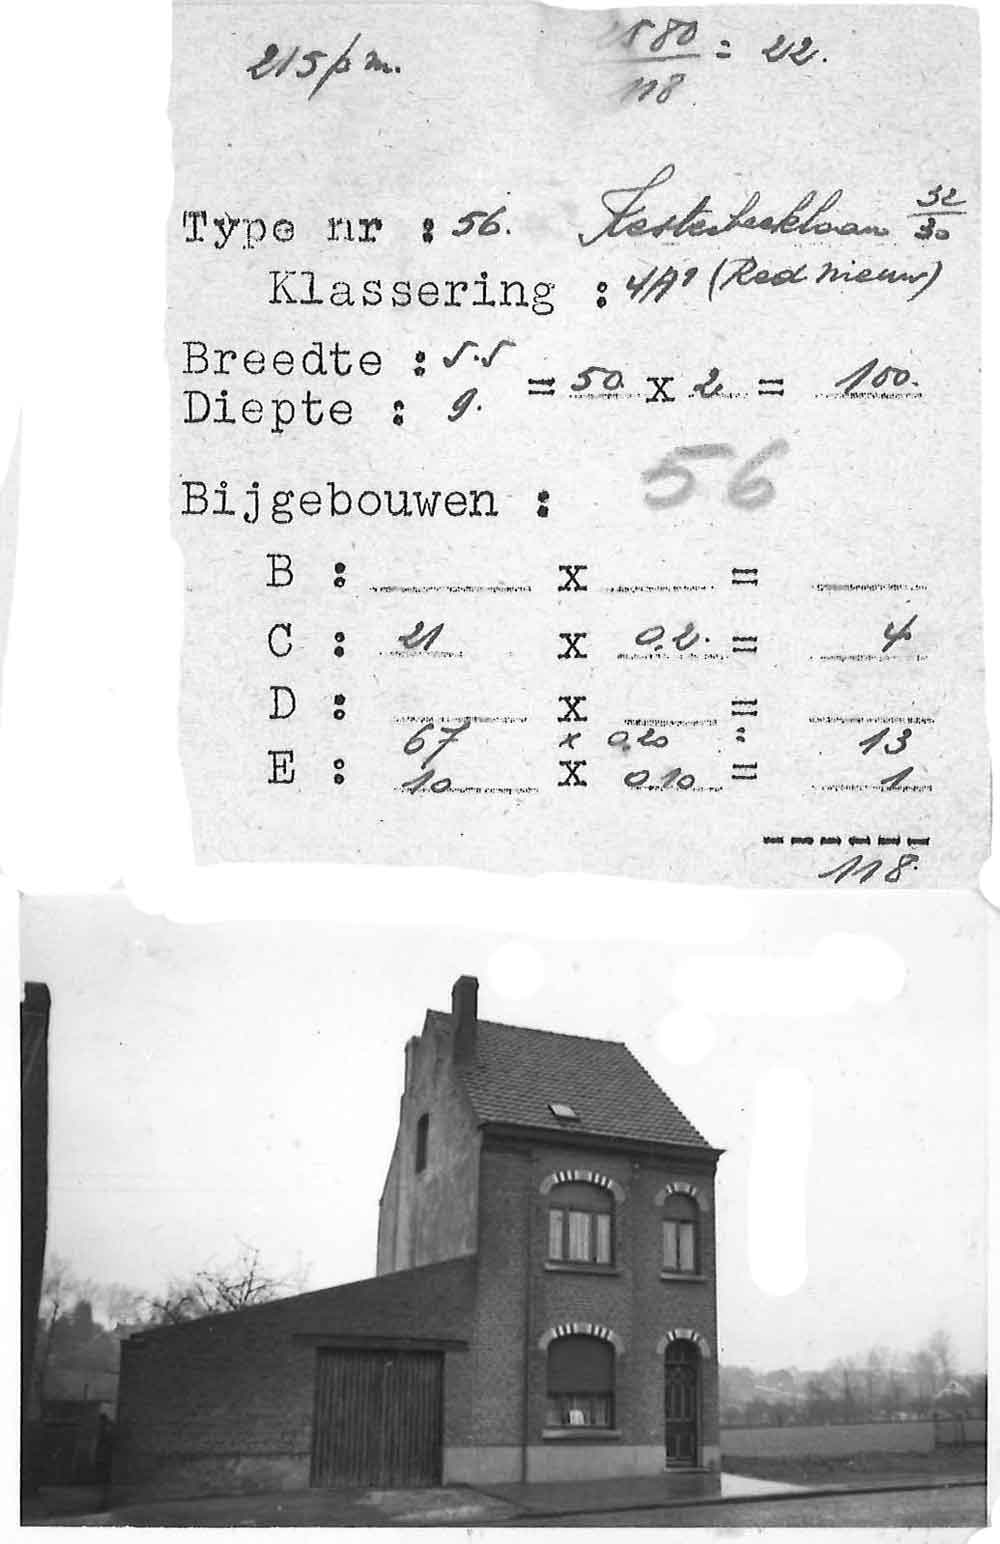 215 p m.
2580 / 118 = 22.
Type nr : 56. Kesterbeeklaan 32/30
Klassering : 4A¹ (Red nieuw)
Breedte : 5.5
= 50. X 2 = 100.
Diepte : 9.
56
Bijgebouwen :
B : X =
C : 21 X 0,2. = 4
D : X =
67 x 0,20 : 13
E : 10 X 0,10 = 1
118.